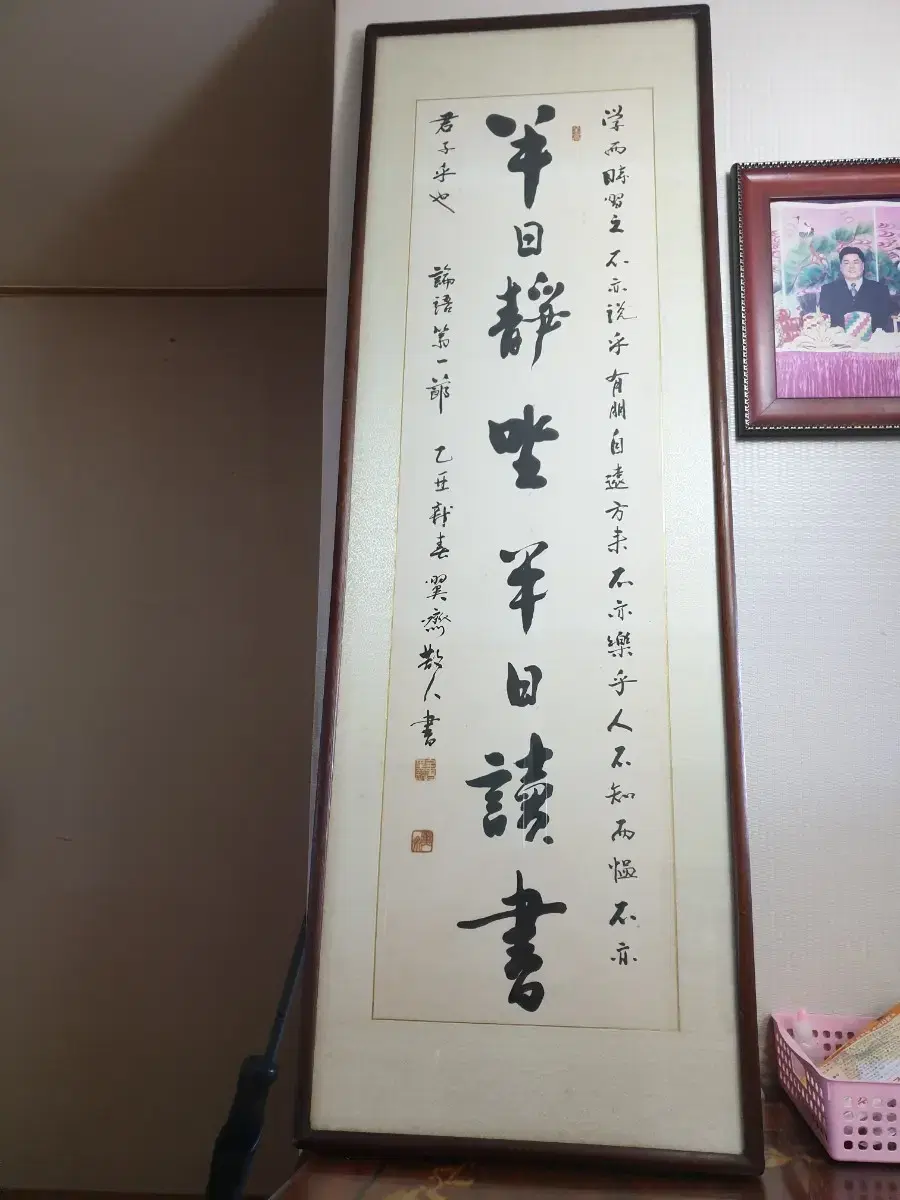 學而時習之不亦説乎有朋自遠方来不亦樂乎人不知而慍不亦
半日靜坐半日讀書
君子乎也 論語第一節 乙丑春翼齋散人書